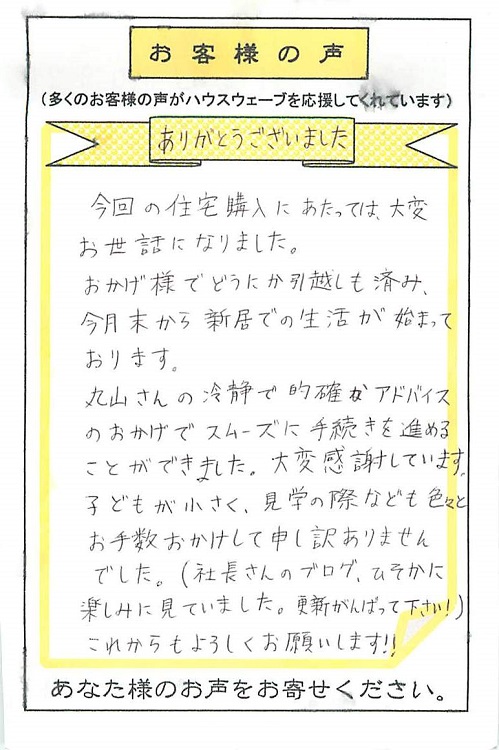 お客様の声
(多くのお客様の声がハウスウェーブを応援してくれています)
ありがとうございました
今回の住宅購入にあたっては、大変
お世話になりました。
おかげ様でどうにか引越しも済み、
今月末から新居での生活が始まって
おります。
丸山さんの冷静で的確なアドバイス
のおかげでスムーズに手続きを進める
ことができました。大変感謝しています。
子どもが小さく、見学の際なども色々と
お手数おかけして申し訳ありません
でした。(社長さんのブログ、ひそかに
楽しみに見ていました。更新がんばって下さい!)
これからもよろしくお願いします!!
あなた様のお声をお寄せください。